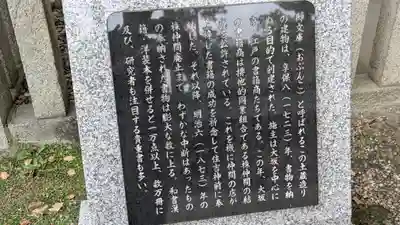 御文庫（おぶんこ）と呼ばれるこの土蔵造り
の建物は、享保八（一七二三）年、書物を納
める目的で創建された。施主は大坂を中心に
江戸の書籍商たちである。この年、大坂
の書籍商は排他的同業組合である株仲間の結
公許されている。これを機に仲間の店が
した書籍の成功を祈念して住吉神前に奉
た。それ以降、明治六（一八七三）年の
株仲間廃止まで、わずかな中断はあったもの
の奉納された書物は膨大な数に上る。和書漢
籍、洋装本を併せると一万点以上、数万冊に
及び、研究者も注目する貴重書も多い。